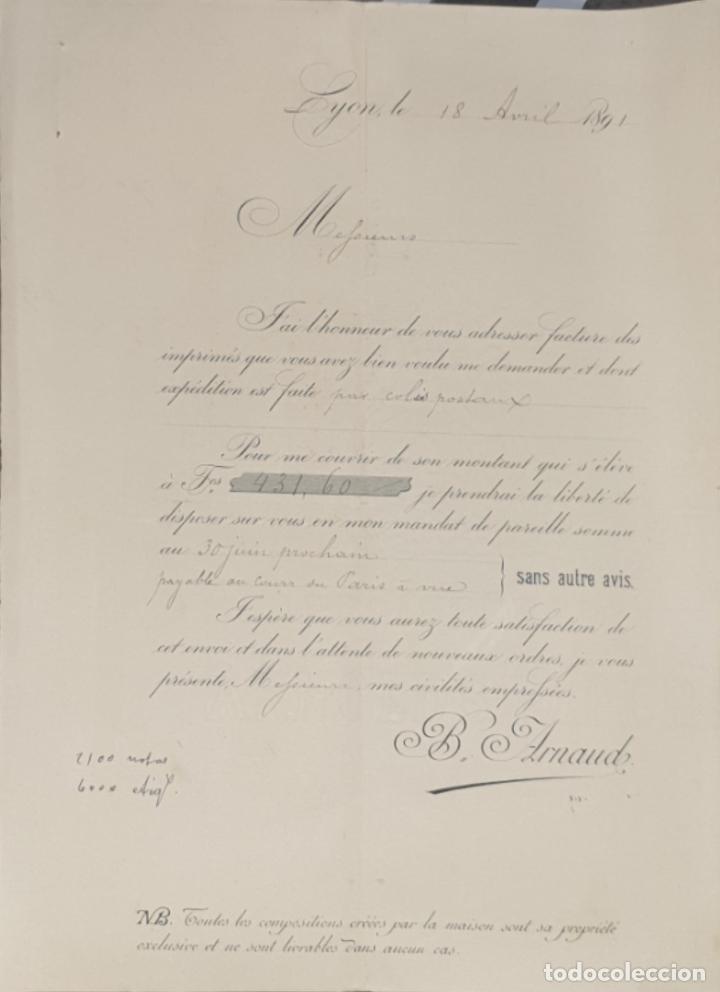 Lyon, le 18 Avril 1891
Messieurs
J'ai l'honneur de vous adresser facture des
imprimés que vous avez bien voulu me demander et dont
expédition est faite par colis postaux
Pour me couvrir de son montant qui s'élève
à Frs 431,60 je prendrai la liberté de
disposer sur vous en mon mandat de pareille somme
au 30 juin prochain
payable au cours du Paris à vue } sans autre avis.
J'espère que vous aurez toute satisfaction de
cet envoi et dans l'attente de nouveaux ordres, je vous
présente, Messieurs, mes civilités empressées.
B. Arnaud.
2100 notas
6000
NB. Toutes les compositions créées par la maison sont sa propriété
exclusive et ne sont livrables dans aucun cas.
todocoleccion